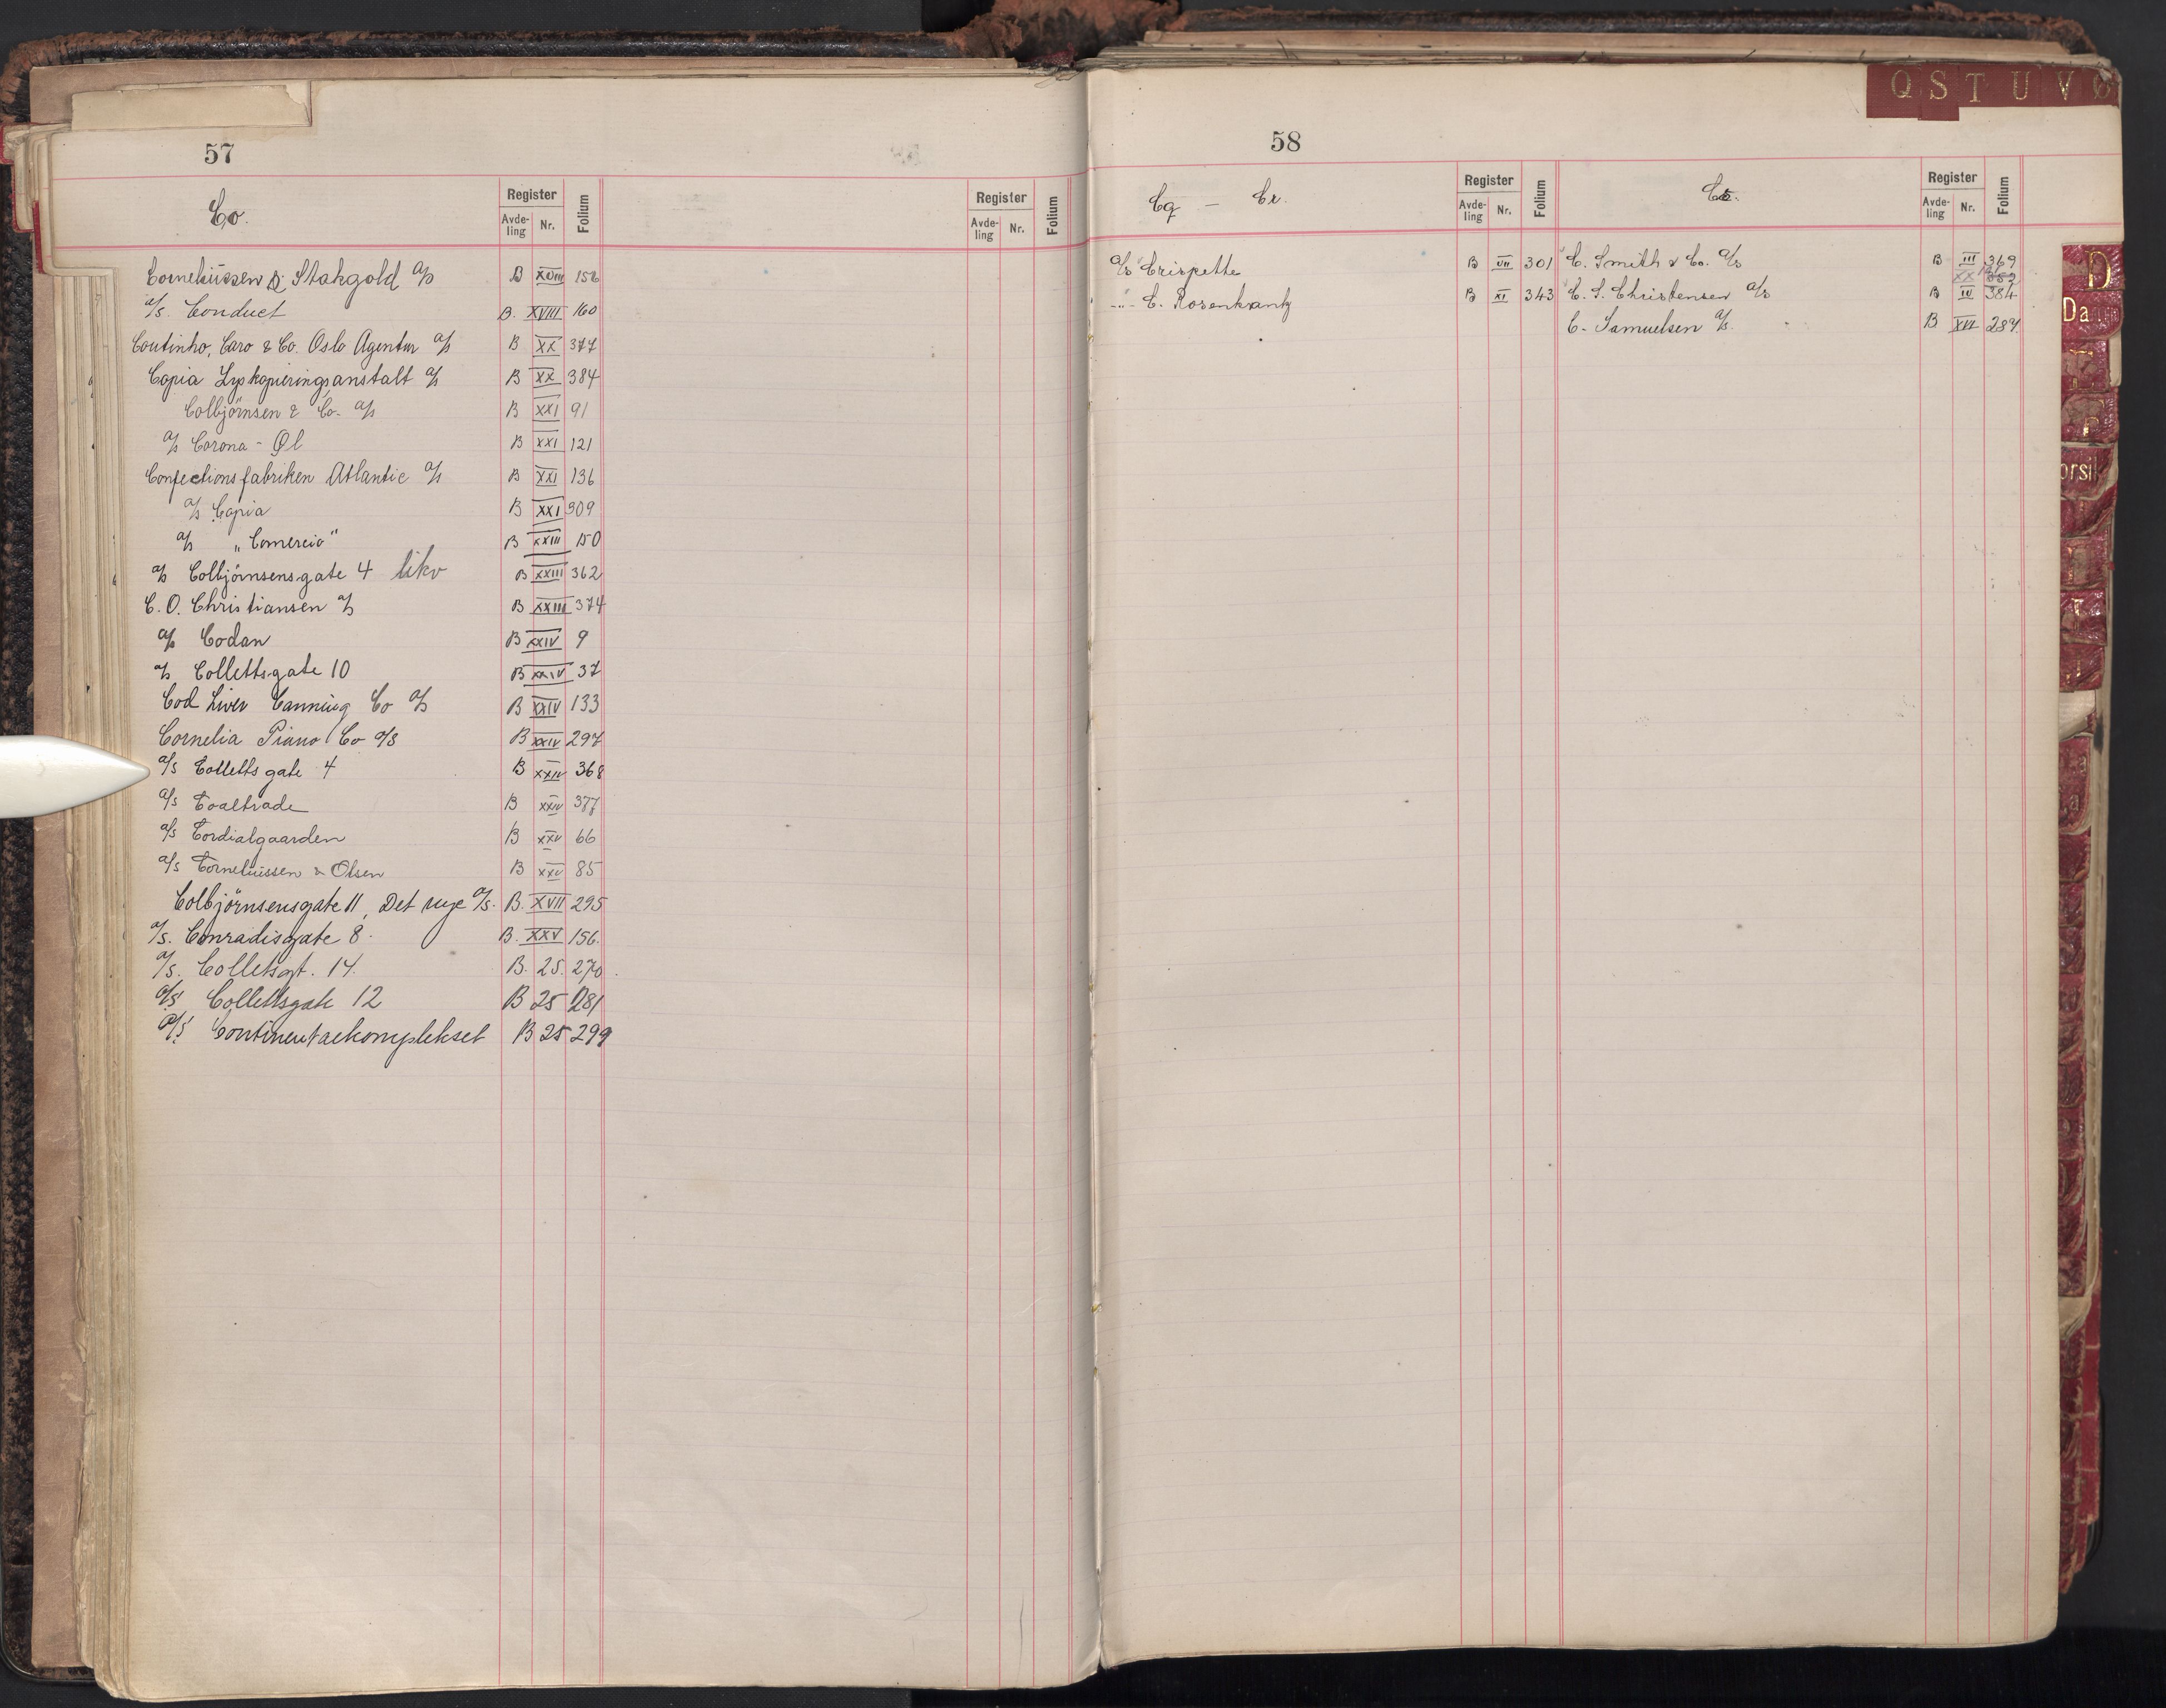 57
Co.
Register
Avde-
ling
Nr.
Folium
Register
Avde-
ling
Nr.
Folium
Corneliussen & Stakgold A/S B XVIII 158
A/S. Conduct B. XVIII 160
Coutinho, Caro & Co. Oslo Agentur A/S B XX 377
Copia Lyskopieringsanstalt A/S B XX 384
Colbjörnsen & Co. A/S B XXI 91
A/S Corona - Øl B XXI 121
Confectionsfabriken Atlantic A/S B XXI 136
A/S Copia B XXI 309
A/S „Comercio" B XXIII 150
A/S Colbjörnsensgate 4 likv B XXIII 362
C. O. Christiansen A/S B XXIII 374
A/S Codan B XXIV 9
A/S Collettsgate 10 B XXIV 37
Cod Liver Canning Co A/S B XXIV 133
Cornelia Piano Co A/S B XXIV 297
A/S Colletts gate 4 B XXIV 368
A/S Coaltrade B XXIV 377
A/S Cordialgaarden B XXV 66
A/S Corneliussen & Olsen B XXV 85
Colbjörnsensgate 11, Det nye A/S. B. XVII 295
A/S. Conradisgate 8. B. XXV 156.
A/S. Colletsgt. 14. B. 25. 270.
A/S Collettsgate 12 B 25 281
A/S Continentalkomplekset B 25 299
58
Cq - Cr.
Register
Avde-
ling
Nr.
Folium
Cs.
Register
Avde-
ling
Nr.
Folium
A/S Crispette B VII 301
-"- C. Rosenkrantz B XI 343
C. Smith & Co. A/S B III 369
XX
C. S. Christensen A/S B IV 384
C. Samuelsen A/S. B XVI 287
Q S T U V Ø
D